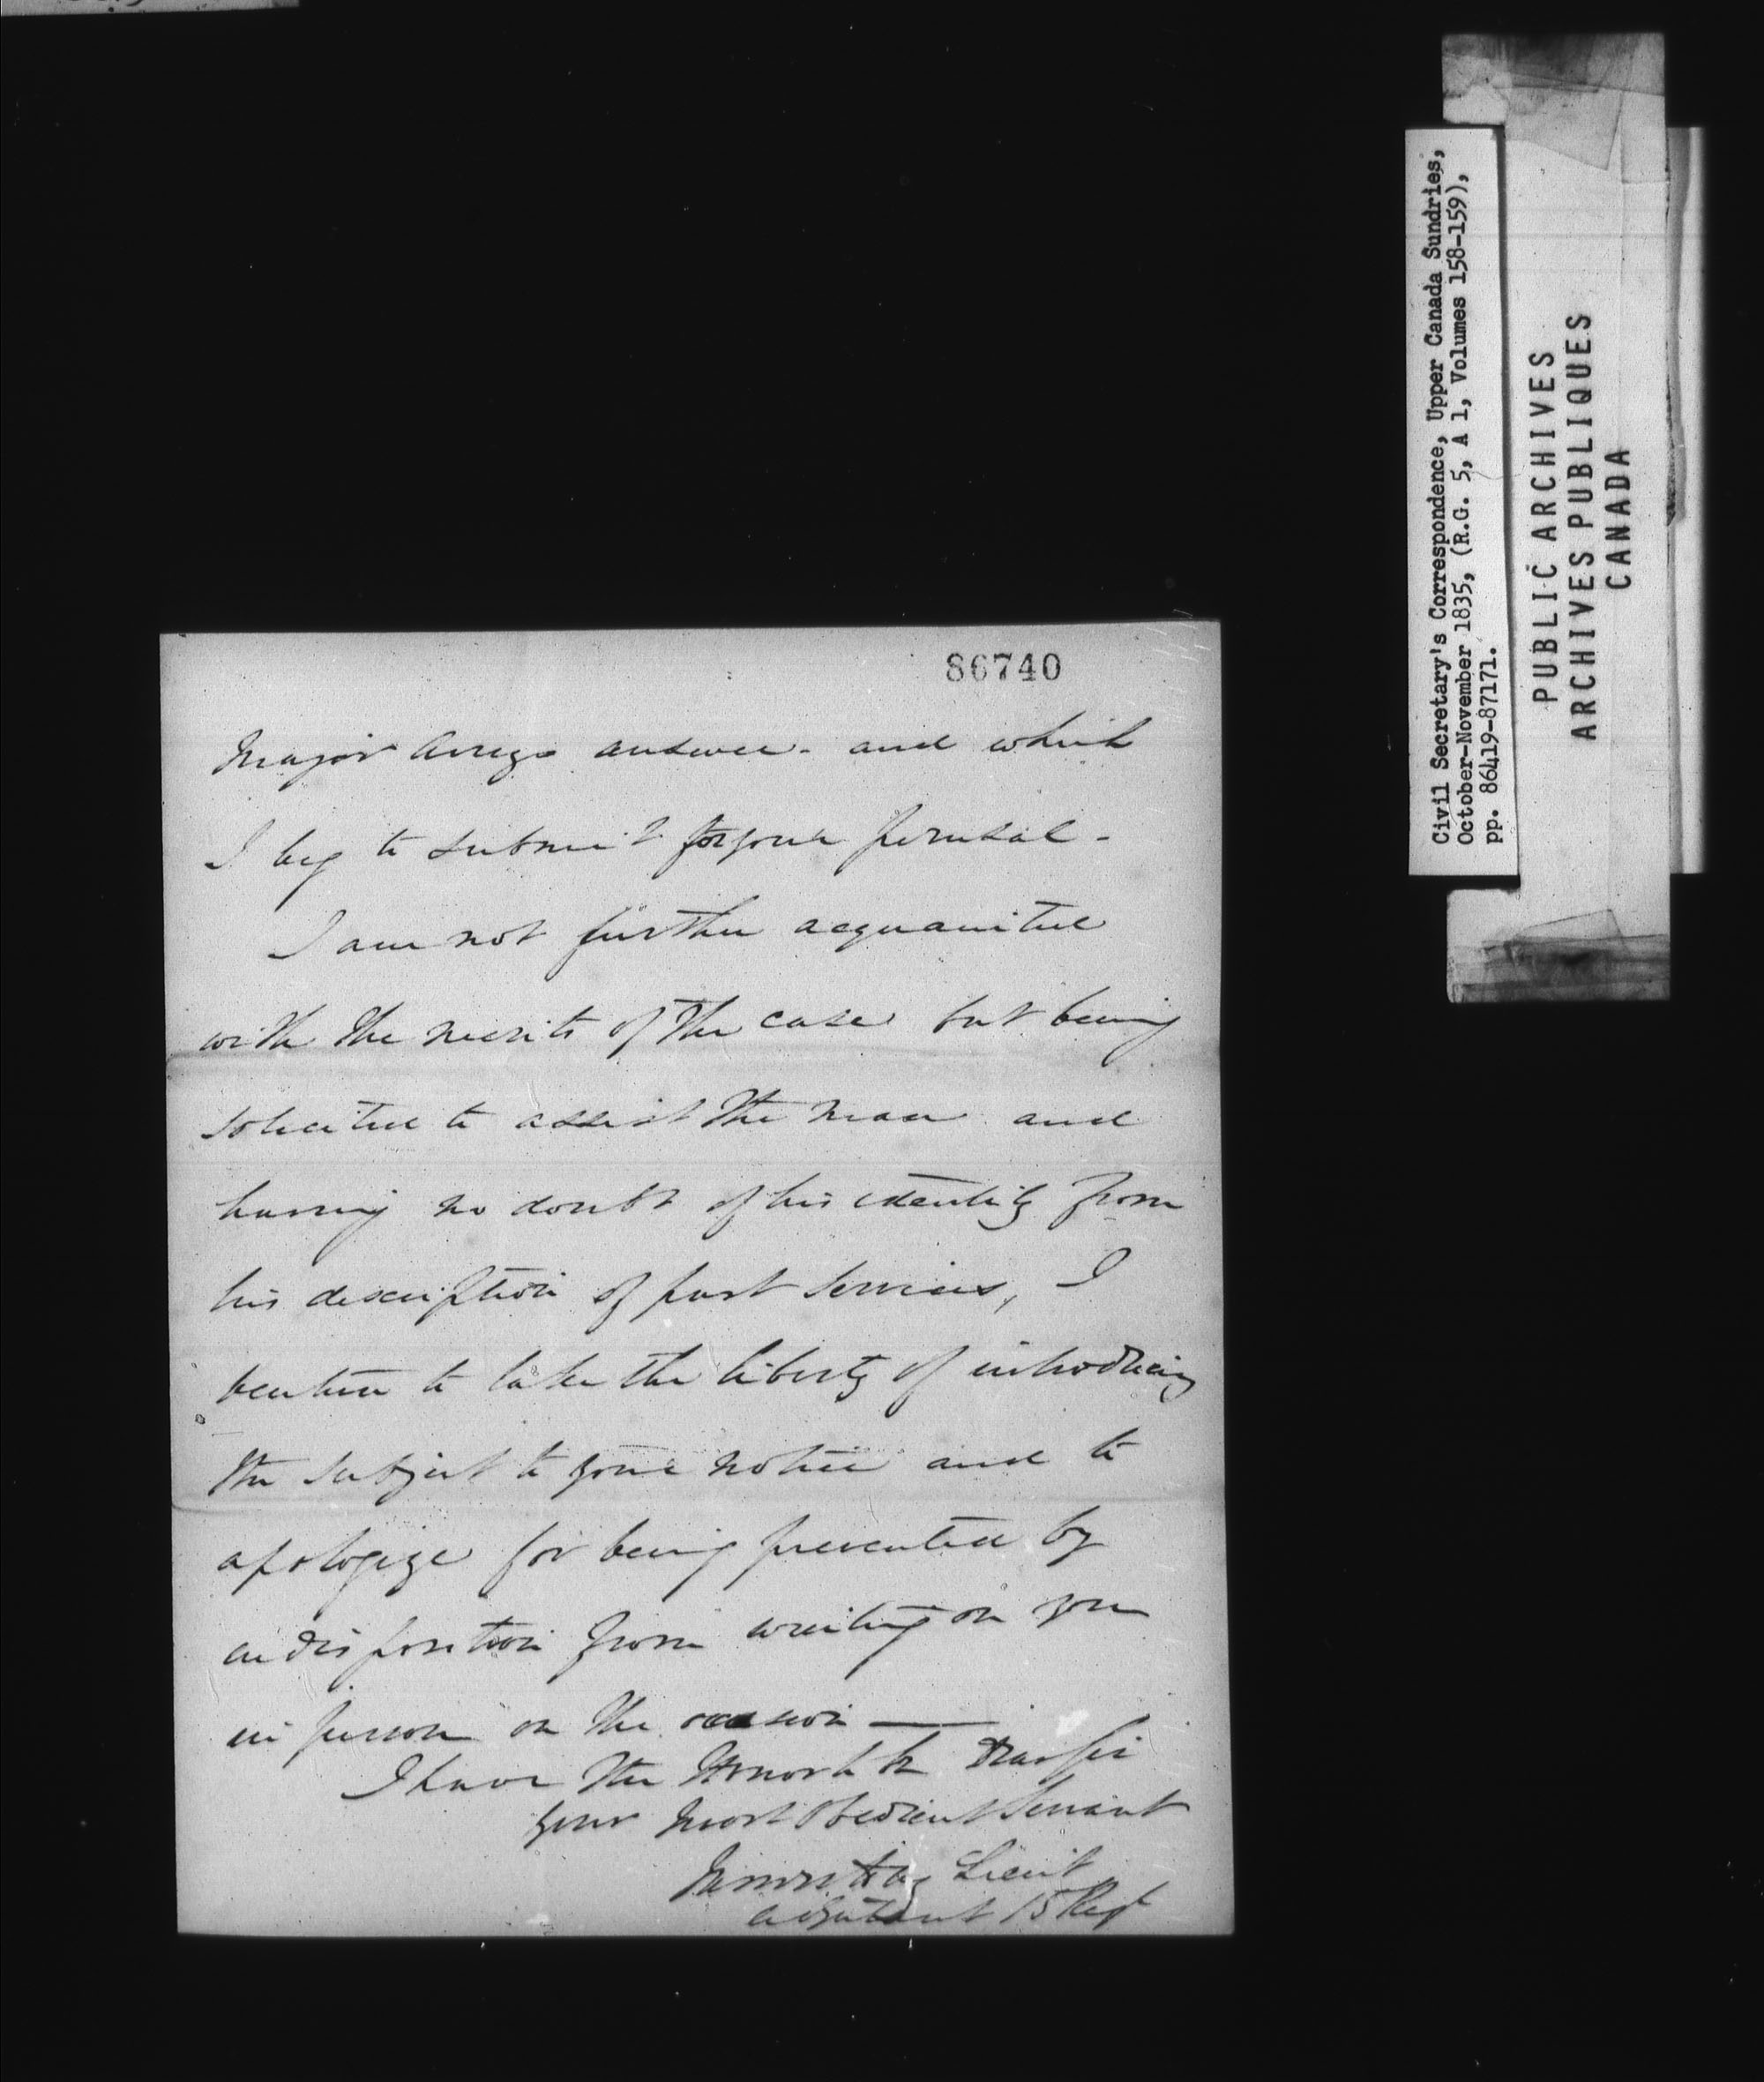 86740
Major answer - and which
I beg to submit for your perusal -
I am not further acquainted
with the merits of the case but being
solicited to assist the man and
having no doubt of his identity from
his description of past services, I
venture to take the liberty of introducing
the subject to your notice and to
apologize for being prevented by
indisposition from waiting on you
in person on the occasion —
I have the Honor to be Dear Sir
your most obedient Servant
Lieut
Adjutant 15 Regt
Civil Secretary's Correspondence, Upper Canada Sundries,
October-November 1835, (R.G. 5, A 1, Volumes 158-159),
pp. 86419-87171.
PUBLIC ARCHIVES
ARCHIVES PUBLIQUES
CANADA